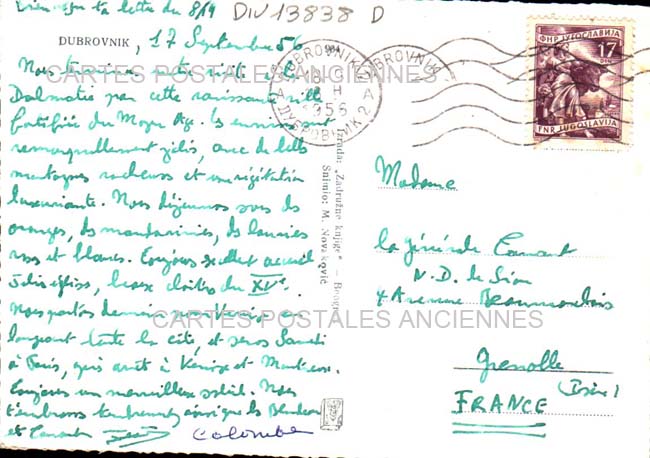 ta lettre du 8/14
DIV 13838 D
DUBROVNIK, 17 Septembre 56
Nous
Dalmatie par cette ravissante ville
fortifiée du Moyen Age. les environs sont
remarquablement jolis, avec de belles
montagnes rocheuses et une végétation
luxuriante. Nous déjeunons sous des
orangers, des mandariniers, des lauriers
roses et blancs. Toujours excellent accueil
Jolies églises, beaux cloîtres du XVe.
Nous partons demain pour Venise en
longeant toute la côte, et serons Samedi
à Paris, après arrêt à Venise et
Toujours un merveilleux soleil. Nous
t'embrassons tendrement ainsi que les
et
Colombe
CARTES POSTALES ANCIENNES
CARTES POSTALES ANCIENNES
"Zadružne knjige" – Beograd
Snimio: M. Novaković
DUBROVNIK 2
1956
ДУБРОВНИК 2
ФНР ЈУГОСЛАВИЈА
17
DIN
FNR JUGOSLAVIJA
Madame
la générale
N. D. de Sion
4 Avenue
Grenoble
(Isère)
FRANCE